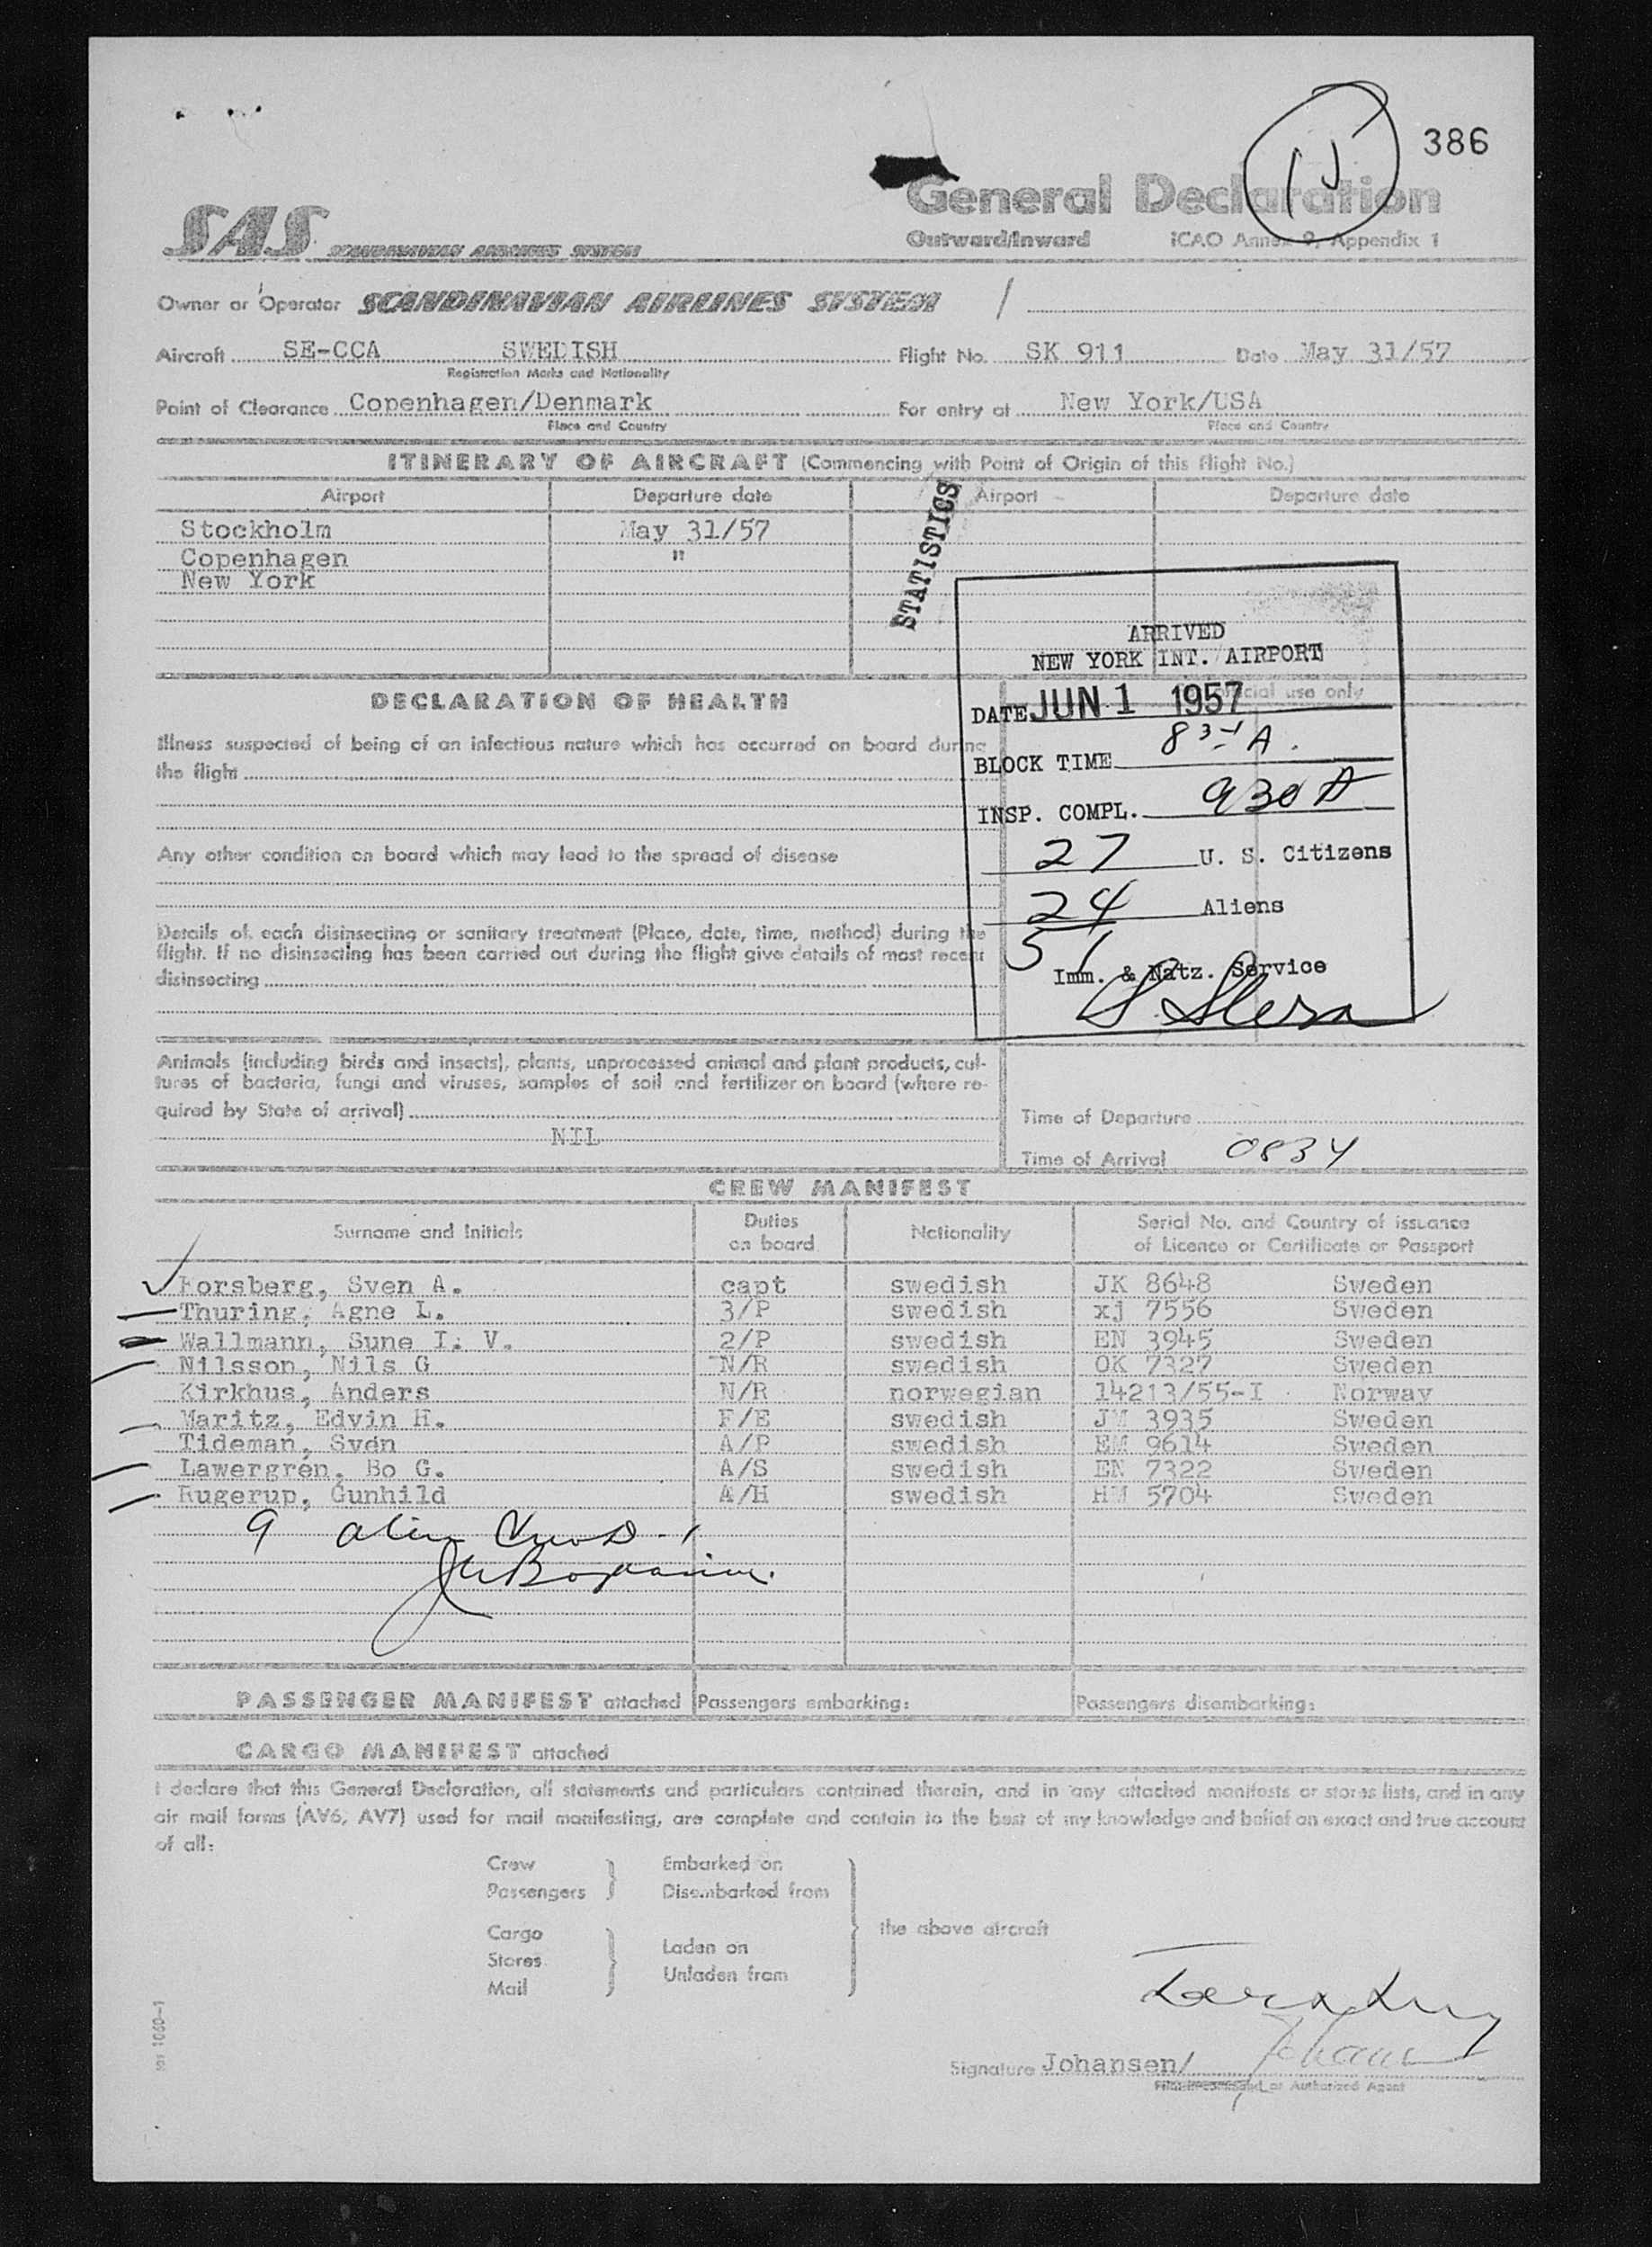 386
General Declaration
Outward/Inward ICAO Annex 9, Appendix 1
SAS SCANDINAVIAN AIRLINES SYSTEM
Owner or Operator SCANDINAVIAN AIRLINES SYSTEM
Aircraft SE-CCA SWEDISH Flight No. SK 911 Date May 31/57
Registration Marks and Nationality
Point of Clearance Copenhagen/Denmark For entry at New York/USA
Place and Country Place and Country
ITINERARY OF AIRCRAFT (Commencing with Point of Origin of this flight No.)
Airport Departure date Airport Departure date
Stockholm May 31/57
Copenhagen "
New York
STATISTICS
ARRIVED
NEW YORK INT. AIRPORT
DATE JUN 1 1957
BLOCK TIME 834 A.
INSP. COMPL. 930 A
27 U. S. Citizens
24 Aliens
51
Imm. & Natz. Service
official use only
DECLARATION OF HEALTH
Illness suspected of being of an infectious nature which has occurred on board during
the flight
Any other condition on board which may lead to the spread of disease
Details of each disinsecting or sanitary treatment (Place, date, time, method) during the
flight. If no disinsecting has been carried out during the flight give details of most recent
disinsecting
Animals (including birds and insects), plants, unprocessed animal and plant products, cul-
tures of bacteria, fungi and viruses, samples of soil and fertilizer on board (where re-
quired by State of arrival)
NIL
Time of Departure
Time of Arrival 0834
CREW MANIFEST
Surname and Initials Duties on board Nationality Serial No. and Country of issuance of Licence or Certificate or Passport
Forsberg, Sven A. capt swedish JK 8648 Sweden
Thuring, Agne L. 3/P swedish xj 7556 Sweden
Wallmann, Sune I. V. 2/P swedish EN 3945 Sweden
Nilsson, Nils G N/R swedish OK 7327 Sweden
Kirkhus, Anders N/R norwegian 14213/55-I Norway
Maritz, Edvin H. F/E swedish JM 3935 Sweden
Tideman, Sven A/P swedish EM 9614 Sweden
Lawergrén, Bo G. A/S swedish EN 7322 Sweden
Rugerup, Gunhild A/H swedish HM 5704 Sweden
9 alien
PASSENGER MANIFEST attached Passengers embarking: Passengers disembarking:
CARGO MANIFEST attached
I declare that this General Declaration, all statements and particulars contained therein, and in any attached manifests or stores lists, and in any
air mail forms (AV6, AV7) used for mail manifesting, are complete and contain to the best of my knowledge and belief an exact and true account
of all:
Crew Embarked on
Passengers Disembarked from
the above aircraft
Cargo Laden on
Stores Unladen from
Mail
Signature Johansen/
or Authorized Agent
1060-1